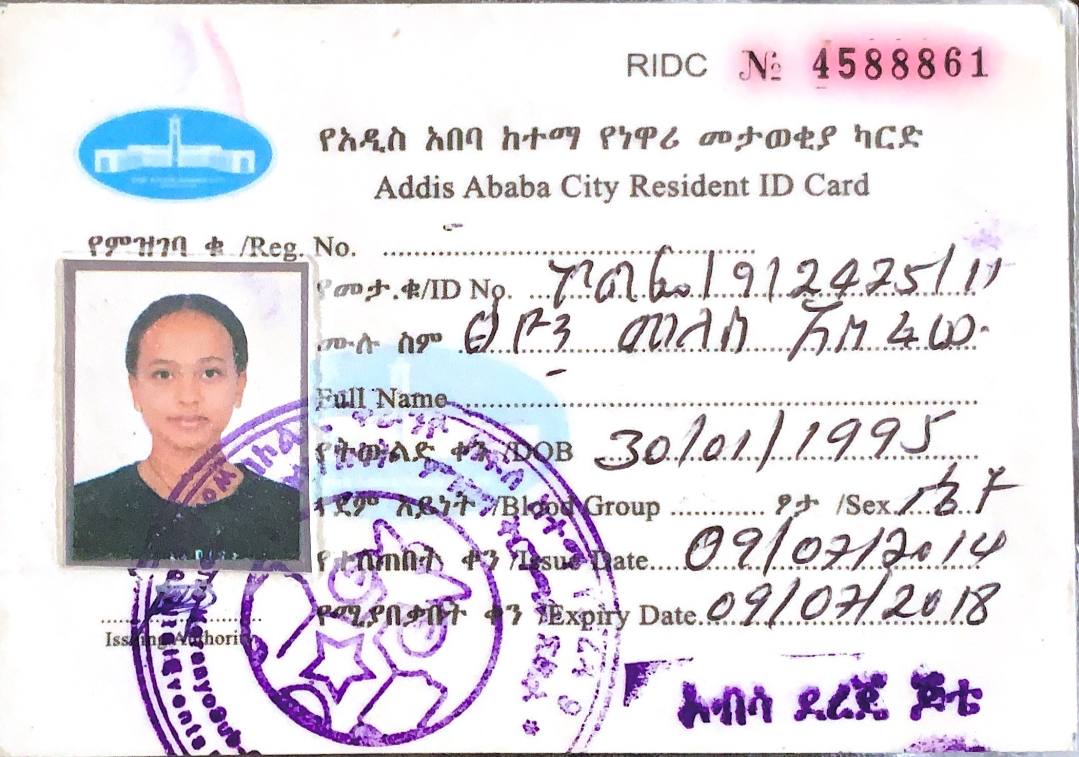 RIDC № 4588861
የአዲስ አበባ ከተማ የነዋሪ መታወቂያ ካርድ
Addis Ababa City Resident ID Card
የምዝገባ ቁ /Reg. No.
የመታ.ቁ/ID No. /9/2425/11
ሙሉ ስም ፅዮን መለስ
Full Name
የትውልድ ቀን /DOB 30/01/1995
የደም አይነት /Blood Group ፆታ /Sex ሴት
የተሰጠበት ቀን /Issue Date 09/07/2014
የሚያበቃበት ቀን /Expiry Date 09/07/2018
Issuing Authority
ደረጄ